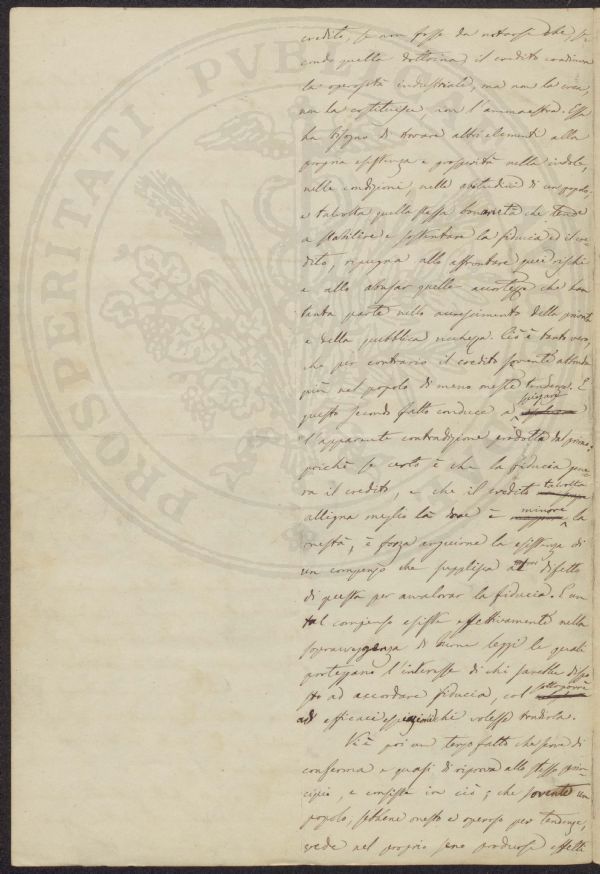 credito, se non fosse da notarsi che, se-
condo quella dottrina il credito continua
la operosità industriale, ma non la crea,
non la costituisce, non l'ammaestra. Essa
ha bisogno di trovare altri elementi alla
propria esistenza e prosperità nella indole,
nelle condizioni, nelle abitudini di un popolo,
e talvolta quella stessa bonarietà che tende
a stabilire e sostentare la fiducia ed il cre-
dito, ripugna allo affrontare quei rischi
e allo abusar quelle accortezze che han
tanta parte nello accrescimento della privata
e della pubblica ricchezza. Ciò è tanto vero,
che per contrario il credito sovente abbonda
più nel popolo di meno oneste tendenze. E
questo secondo fatto conduce a spiegare
l'apparente contradizione prodotta dal primo;
poichè se certo è che la fiducia gene-
ra il credito, e che il credito talvolta
alligna meglio là dove è minore la
onestà, è forza arguirne la esistenza di
un compenso che supplisca al difetto
di questa per avvalorar la fiducia. E un
tal compenso esiste effettivamente nella
sopravveggenza di buone leggi le quali
proteggano l'interesse di chi sarebbe dispo-
sto ad accordare fiducia, col sottoporre
ad efficaci espiazioni chi volesse tradirla.
Vi è poi un terzo fatto che serve di
conferma e quasi di riprova allo stesso prin-
cipio, e consiste in ciò; che sovente un
popolo, sebbene onesto e operoso per tendenze,
vede nel proprio seno prodursi effetti
PROSPERITATI PVBL